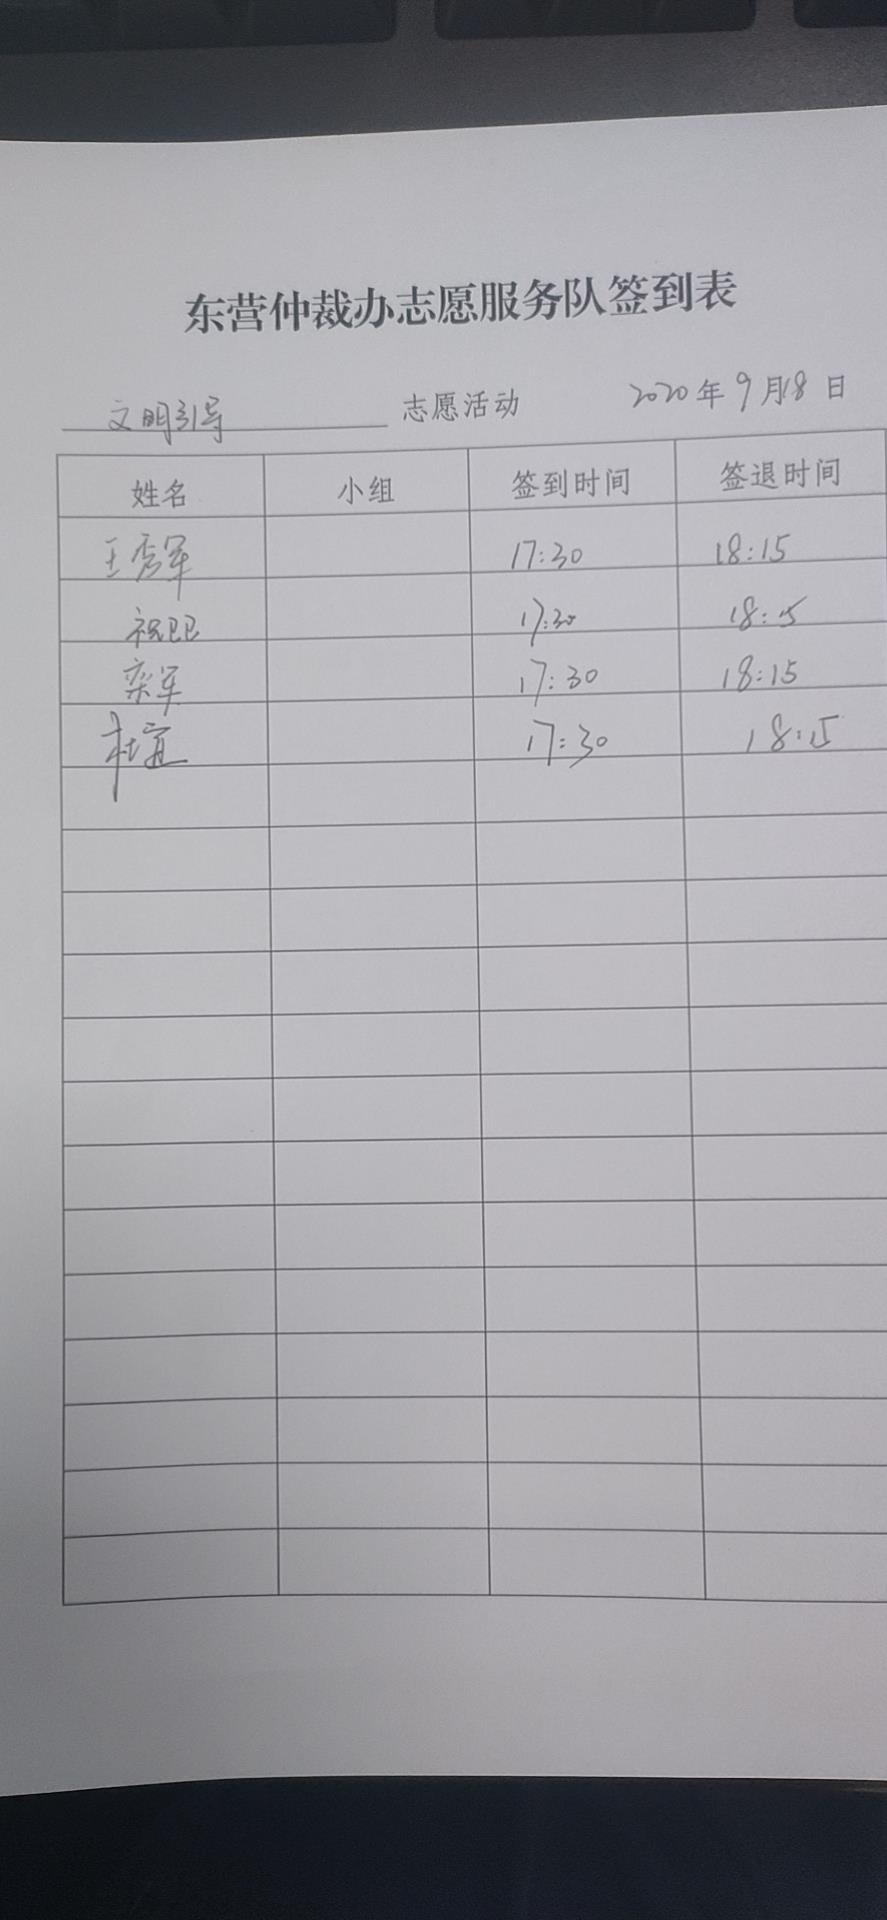 东营仲裁办志愿服务队签到表
文明引导 志愿活动 2020年9月18日
姓名 小组 签到时间 签退时间
王秀军 17:30 18:15
祝卫卫 17:30 18:15
栾军 17:30 18:15
杜宜 17:30 18:15